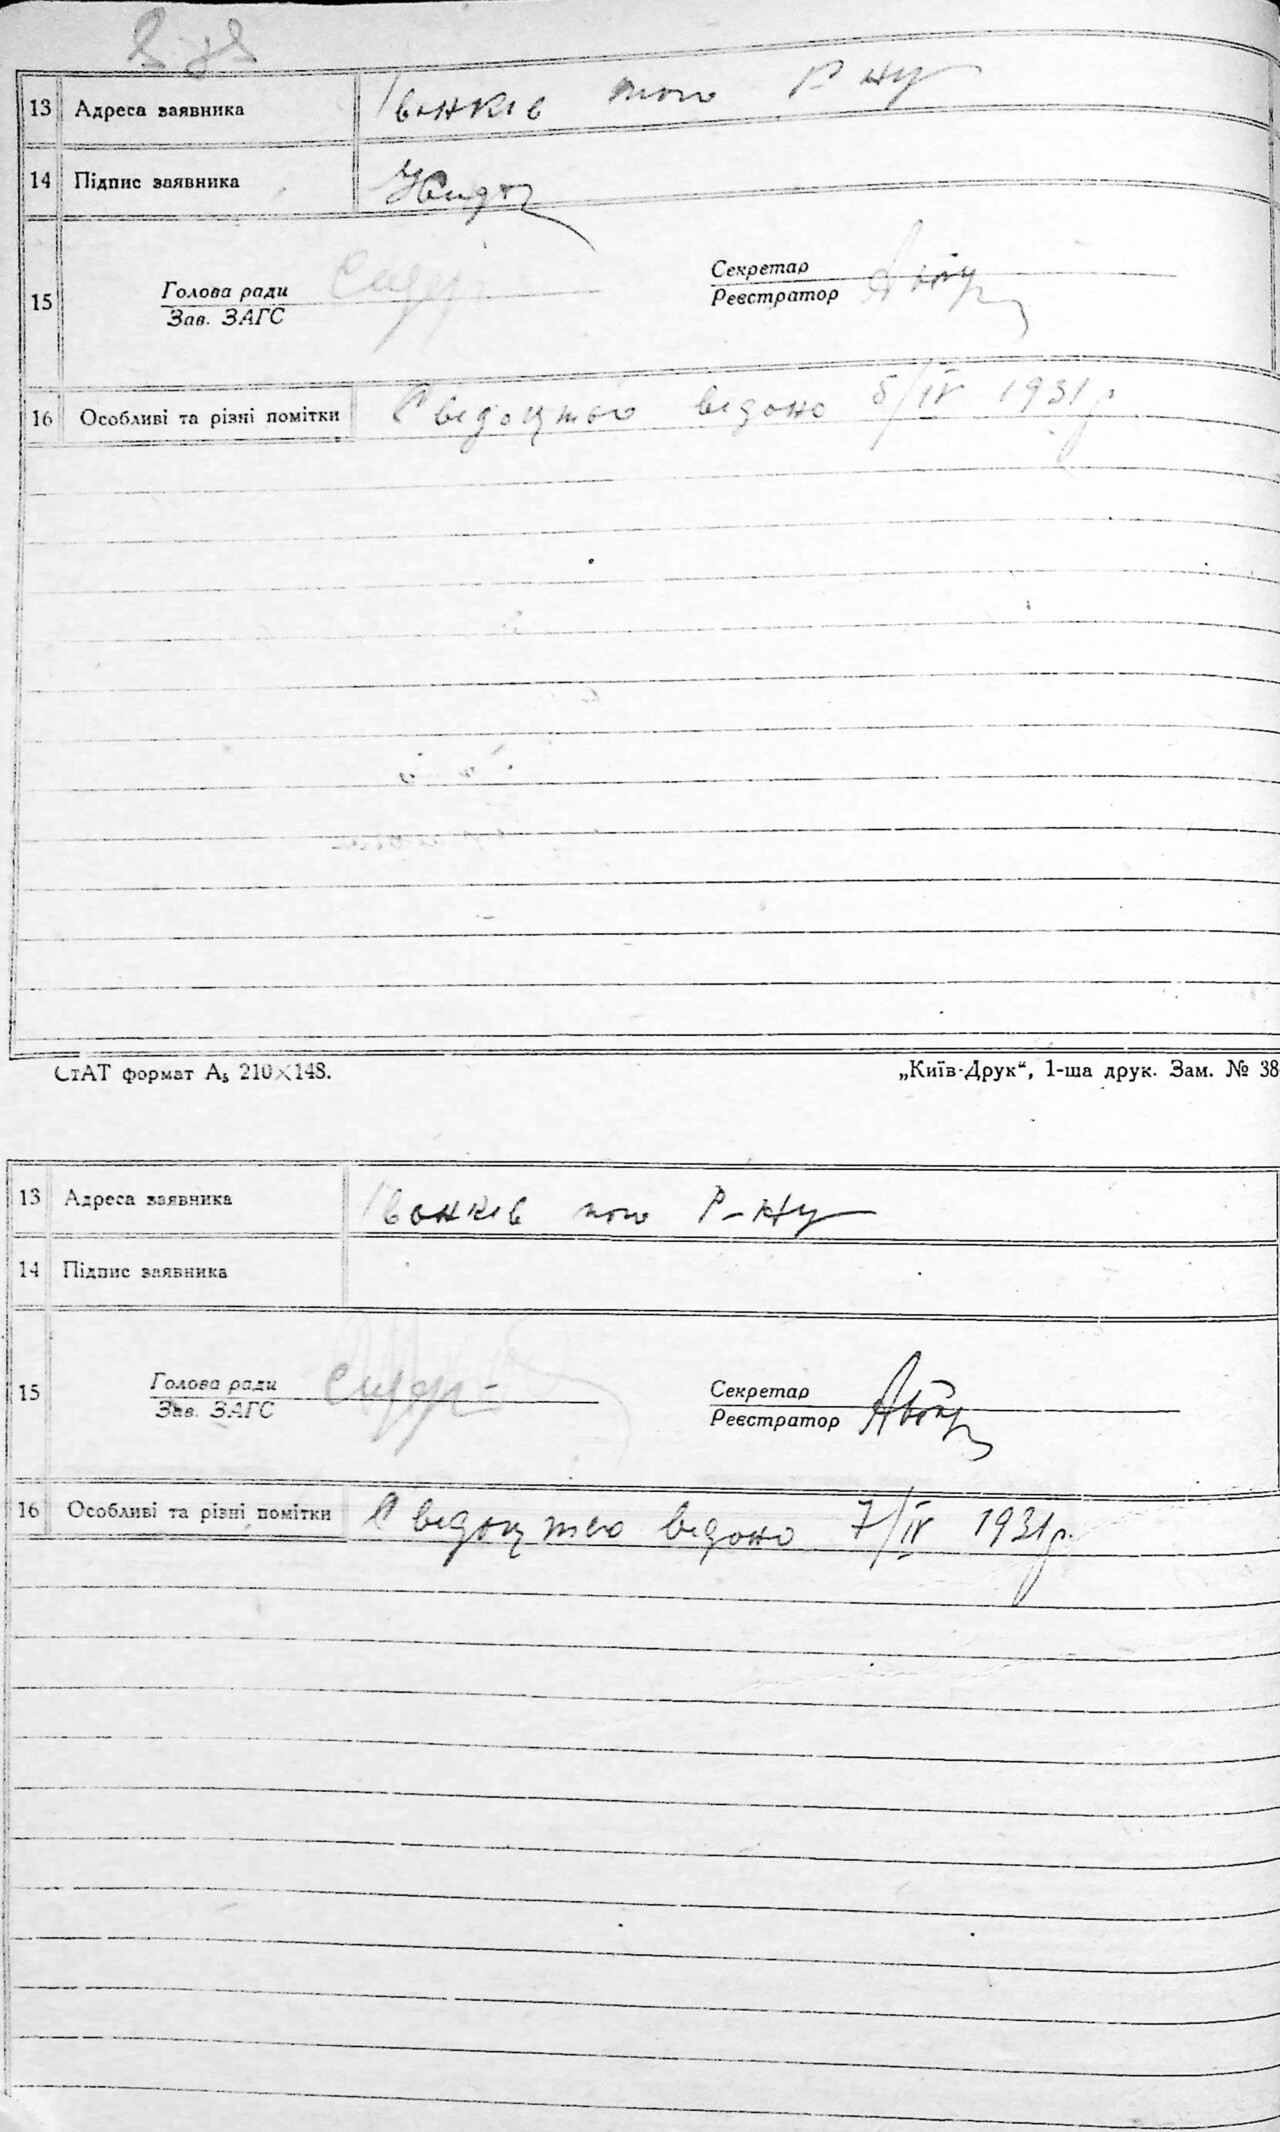 13 Адреса заявника Іванків того Р-ну
14 Підпис заявника
15 Голова ради
Зав. ЗАГС
Секретар
Реєстратор
16 Особливі та різні помітки Сведоцтво ведоно 5/IV 1931 р.
СтАТ формат А₅ 210×148.
„Київ-Друк“, 1-ша друк. Зам. № 38
13 Адреса заявника Іванків того Р-ну
14 Підпис заявника
15 Голова ради
Зав. ЗАГС
Секретар
Реєстратор
16 Особливі та різні помітки Сведоцтво ведоно 7/IV 1931 р.